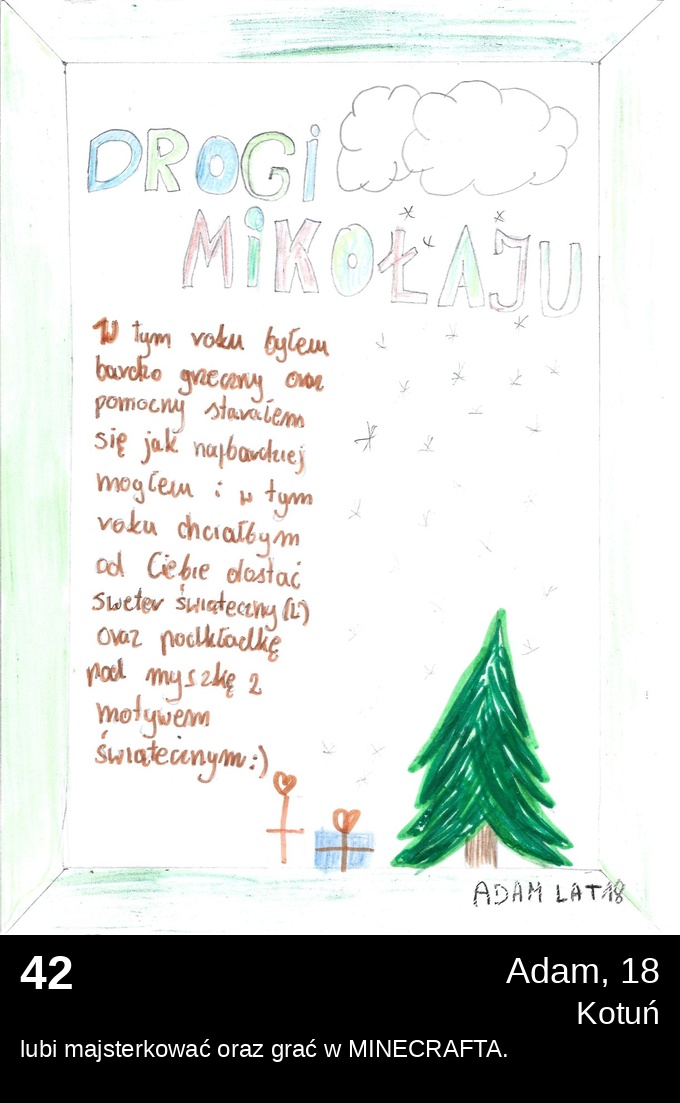 DROGI
MiKOŁAJU
W tym roku byłem
bardzo grzeczny oraz
pomocny starałem
się jak najbardziej
mogłem i w tym
roku chciałbym
od Ciebie dostać
sweter świąteczny (L)
oraz podkładkę
pod myszkę z
motywem
świątecznym:)
ADAM LAT 18
42
Adam, 18
Kotuń
lubi majsterkować oraz grać w MINECRAFTA.